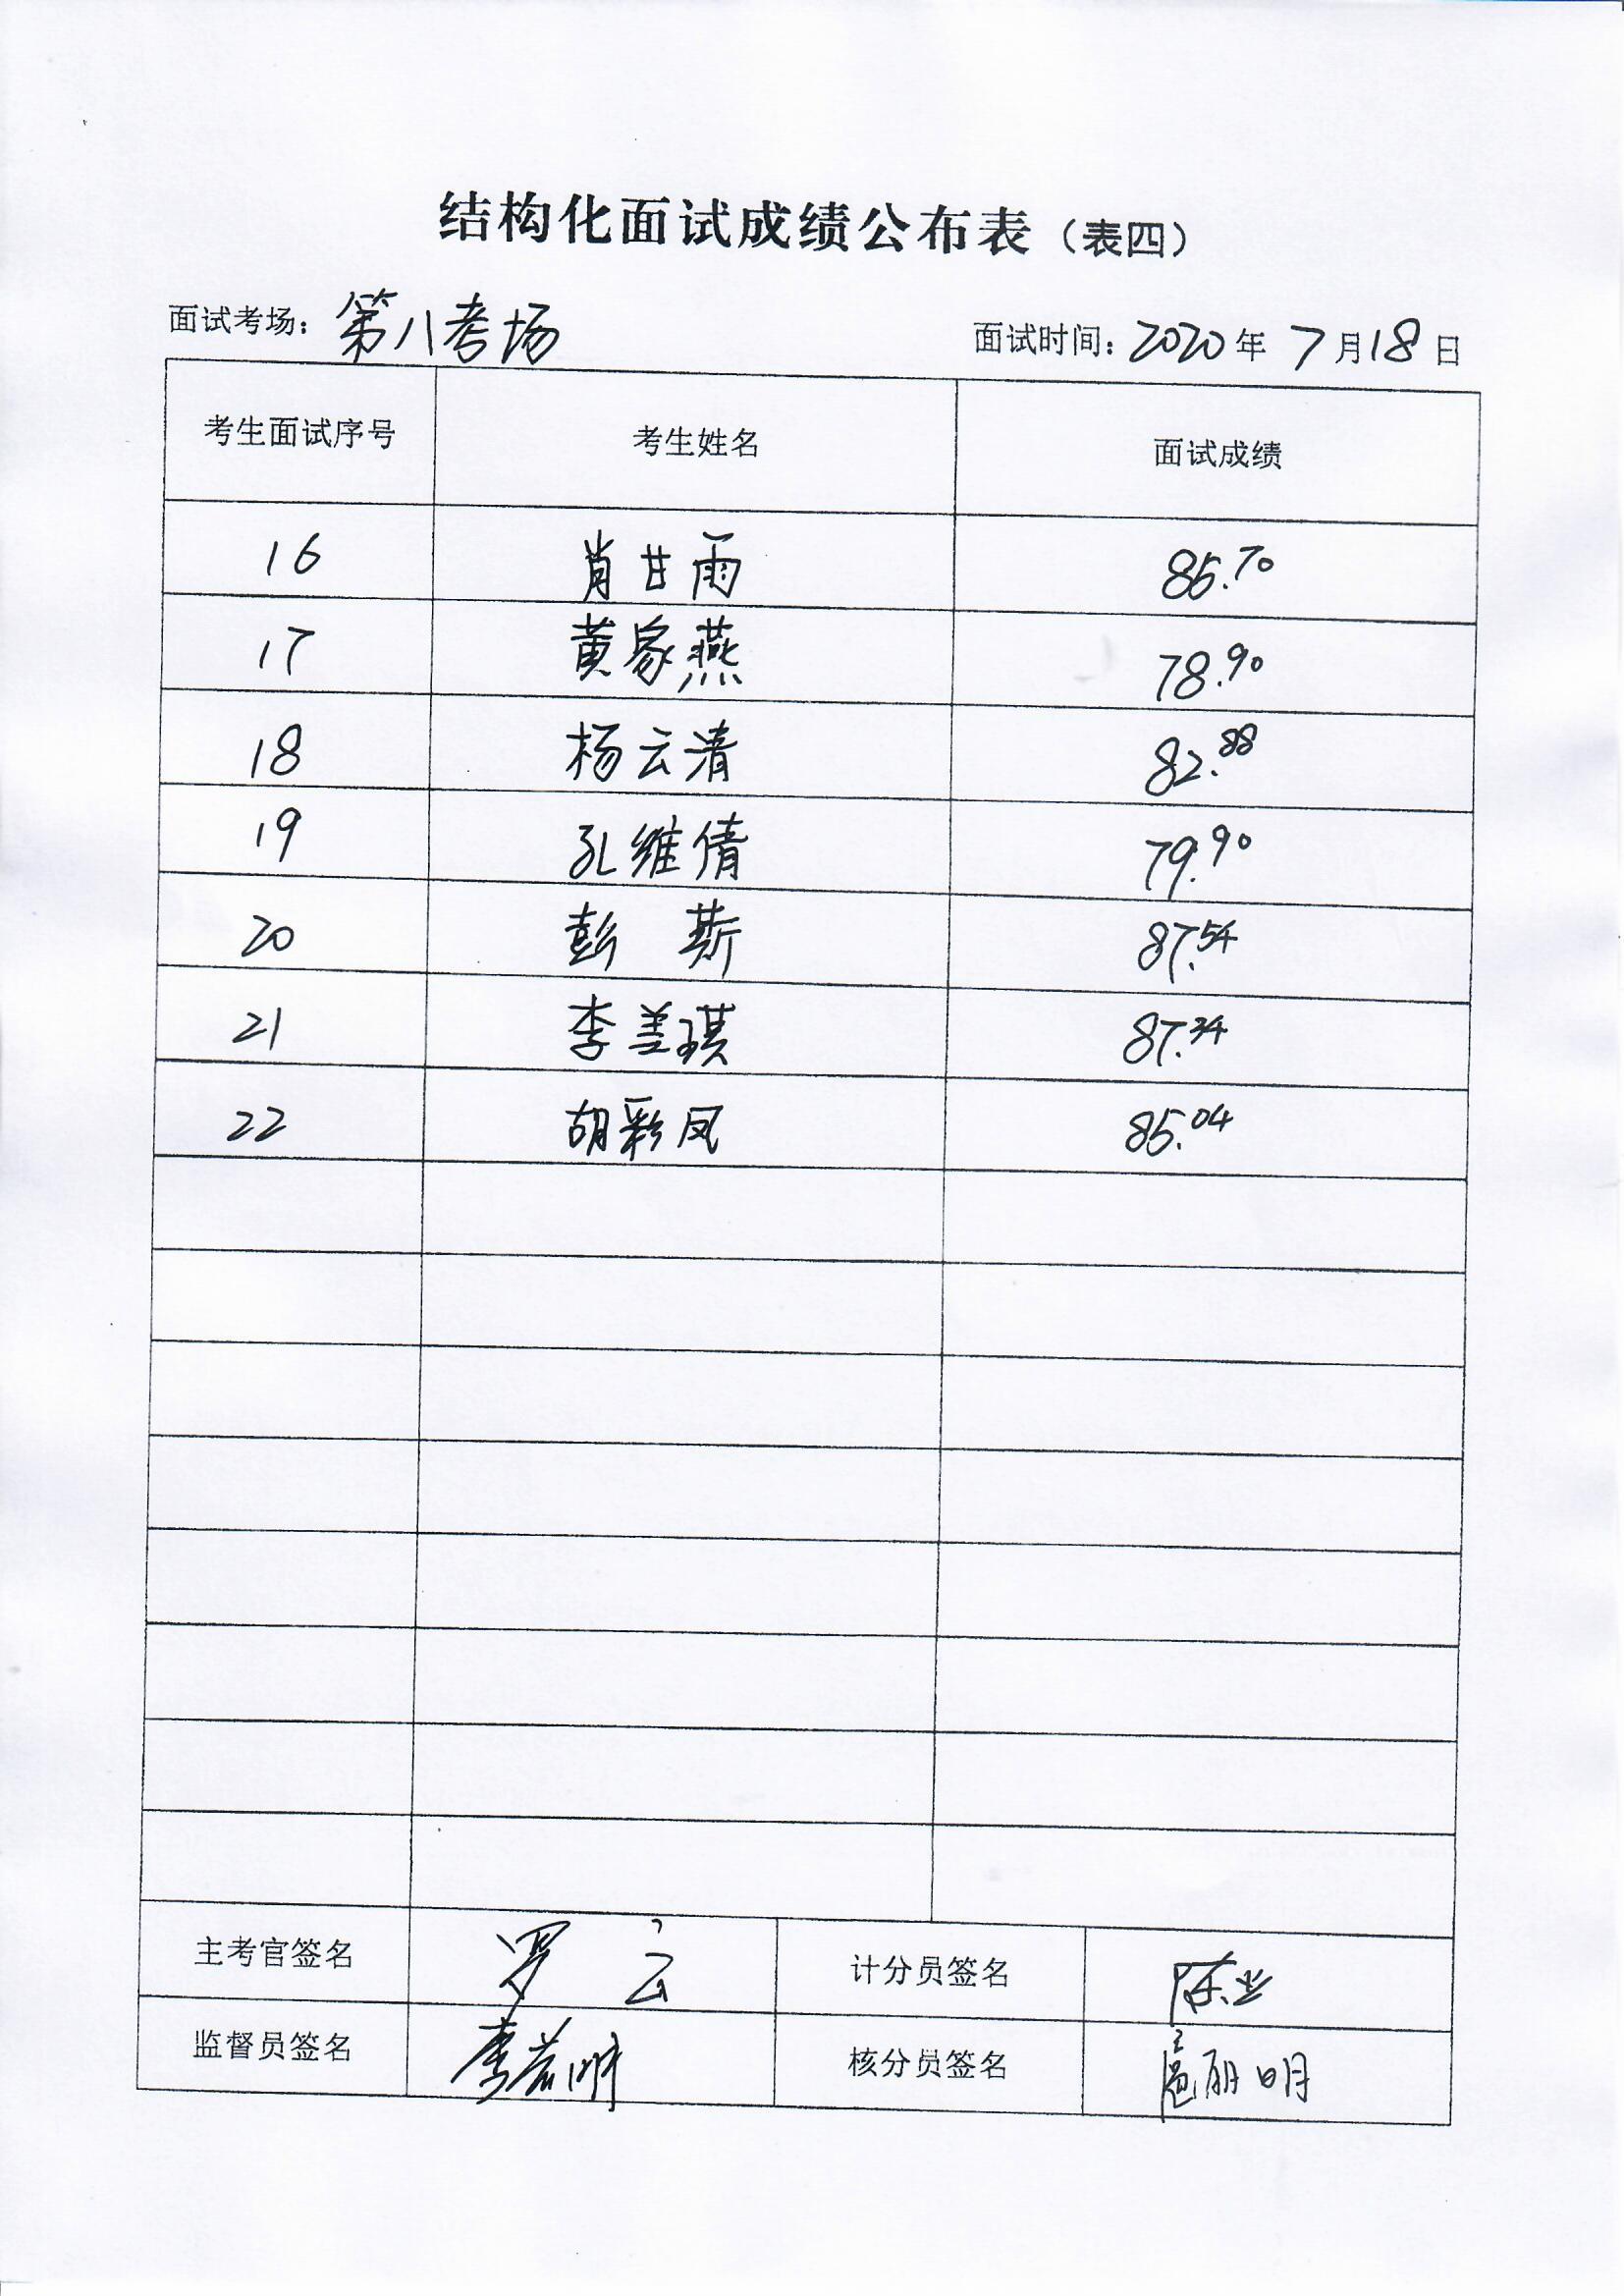 结构化面试成绩公布表（表四）
面试考场：第八考场 面试时间：2020年7月18日
考生面试序号 考生姓名 面试成绩
16 肖甘雨 85.70
17 黄家燕 78.90
18 杨云清 82.88
19 孔维倩 79.90
20 彭斯 87.54
21 李美琪 87.34
22 胡彩凤 85.04
主考官签名 罗云 计分员签名 陈业
监督员签名 核分员签名